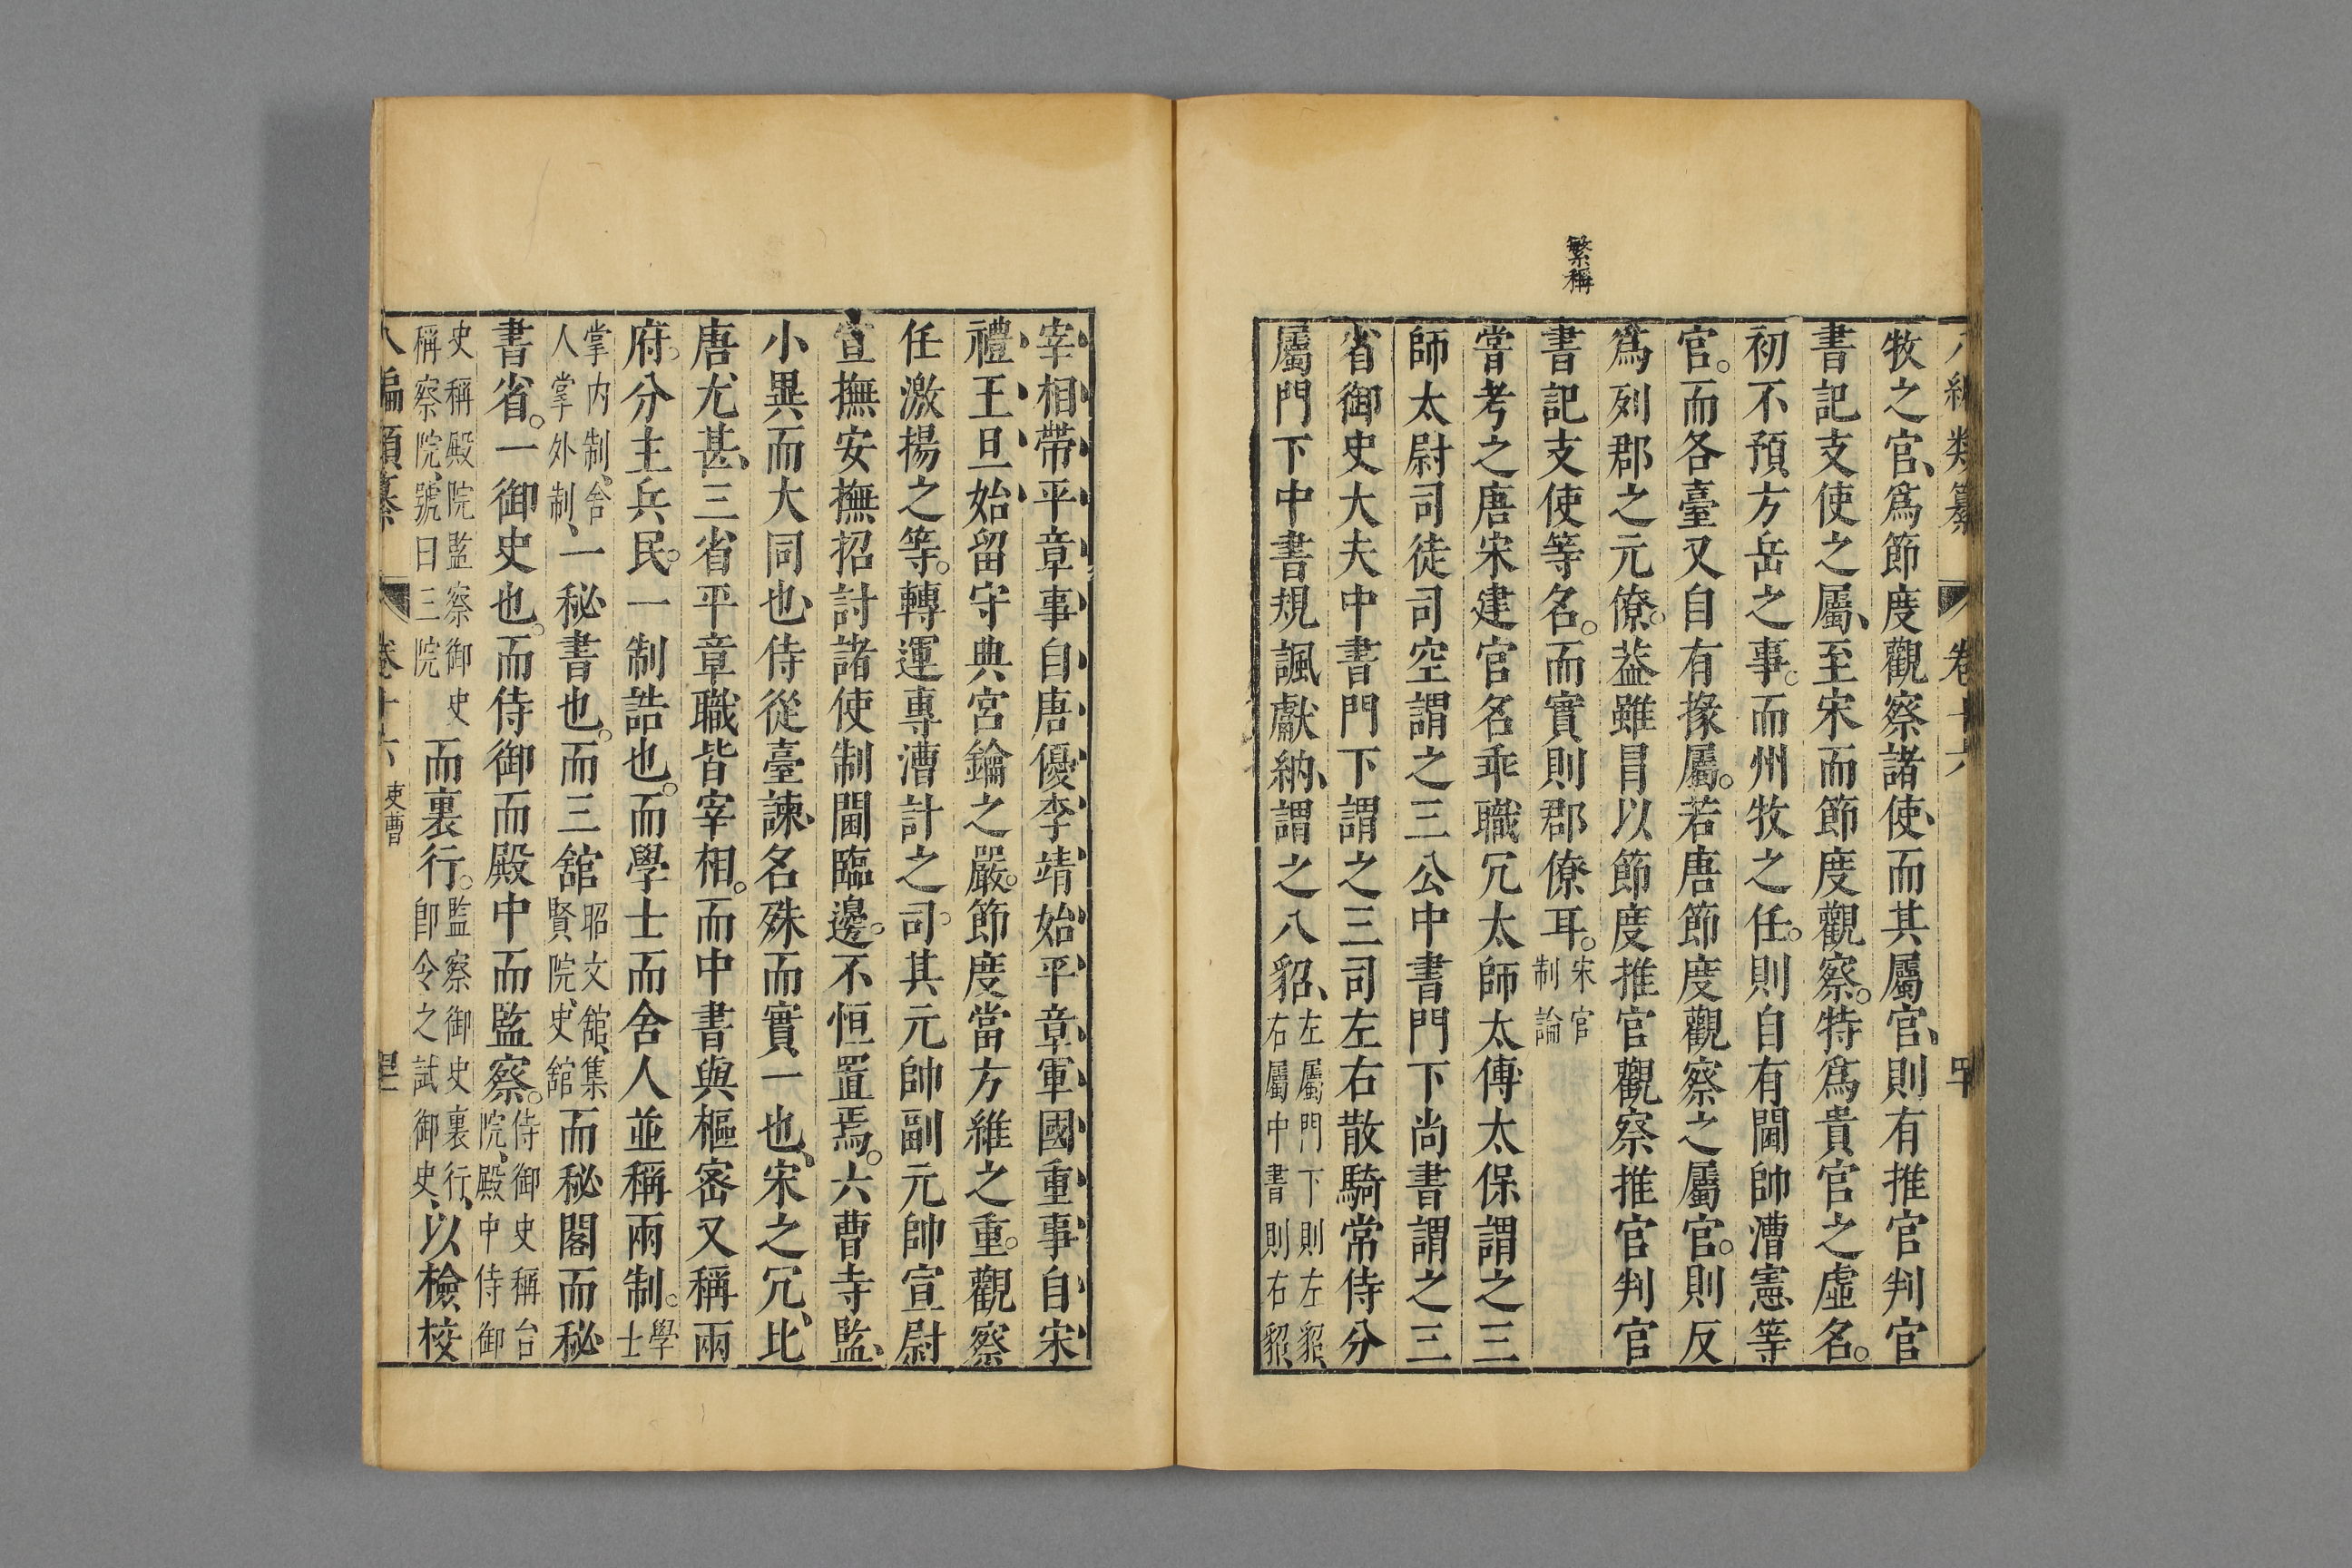 八編類纂　卷十六　四十
牧之官、爲節度觀察諸使、而其屬官、則有推官判官
書記支使之屬、至宋而節度觀察。特爲貴官之虛名。
初不預方岳之事。而州牧之任。則自有閫帥漕憲、等
官。而各臺又自有掾屬。若唐節度觀察之屬官。則反
爲列郡之元僚。蓋雖冒以節度推官觀察推官判官
書記支使等名。而實則郡僚耳。宋官制論
繁稱
嘗考之唐宋建官名乖職冗太師太傅太保謂之三
師太尉司徒司空謂之三公中書門下尚書謂之三
省御史大夫中書門下謂之三司左右散騎常侍分
屬門下中書規諷獻納、謂之八貂、左屬門下則左貂、右屬中書則右貂、
宰相帶平章事自唐優李靖始平章軍國重事自宋
禮王旦始留守典宮鑰之嚴。節度當方維之重。觀察
任激揚之等。轉運專漕計之司。其元帥副元帥宣尉
宣撫安撫招討諸使制閫臨邊。不恒置焉。六曹寺監、
小異而大同也、侍從臺諫、名殊而實一也、宋之冗、比
唐尤甚、三省平章職皆宰相。而中書與樞密又稱兩
府。分主兵民。一制誥也。而學士而舍人並稱兩制。學士
掌内制、舍人掌外制、一秘書也。而三舘昭文舘、集賢院、史舘而秘閣而秘
書省。一御史也。而侍御而殿中而監察。侍御史稱台院、殿中侍御
史稱殿院監察御史稱察院、號曰三院而裏行。監察御史裏行、卽令之試御史、以檢校
八編類纂　卷十六　吏曹